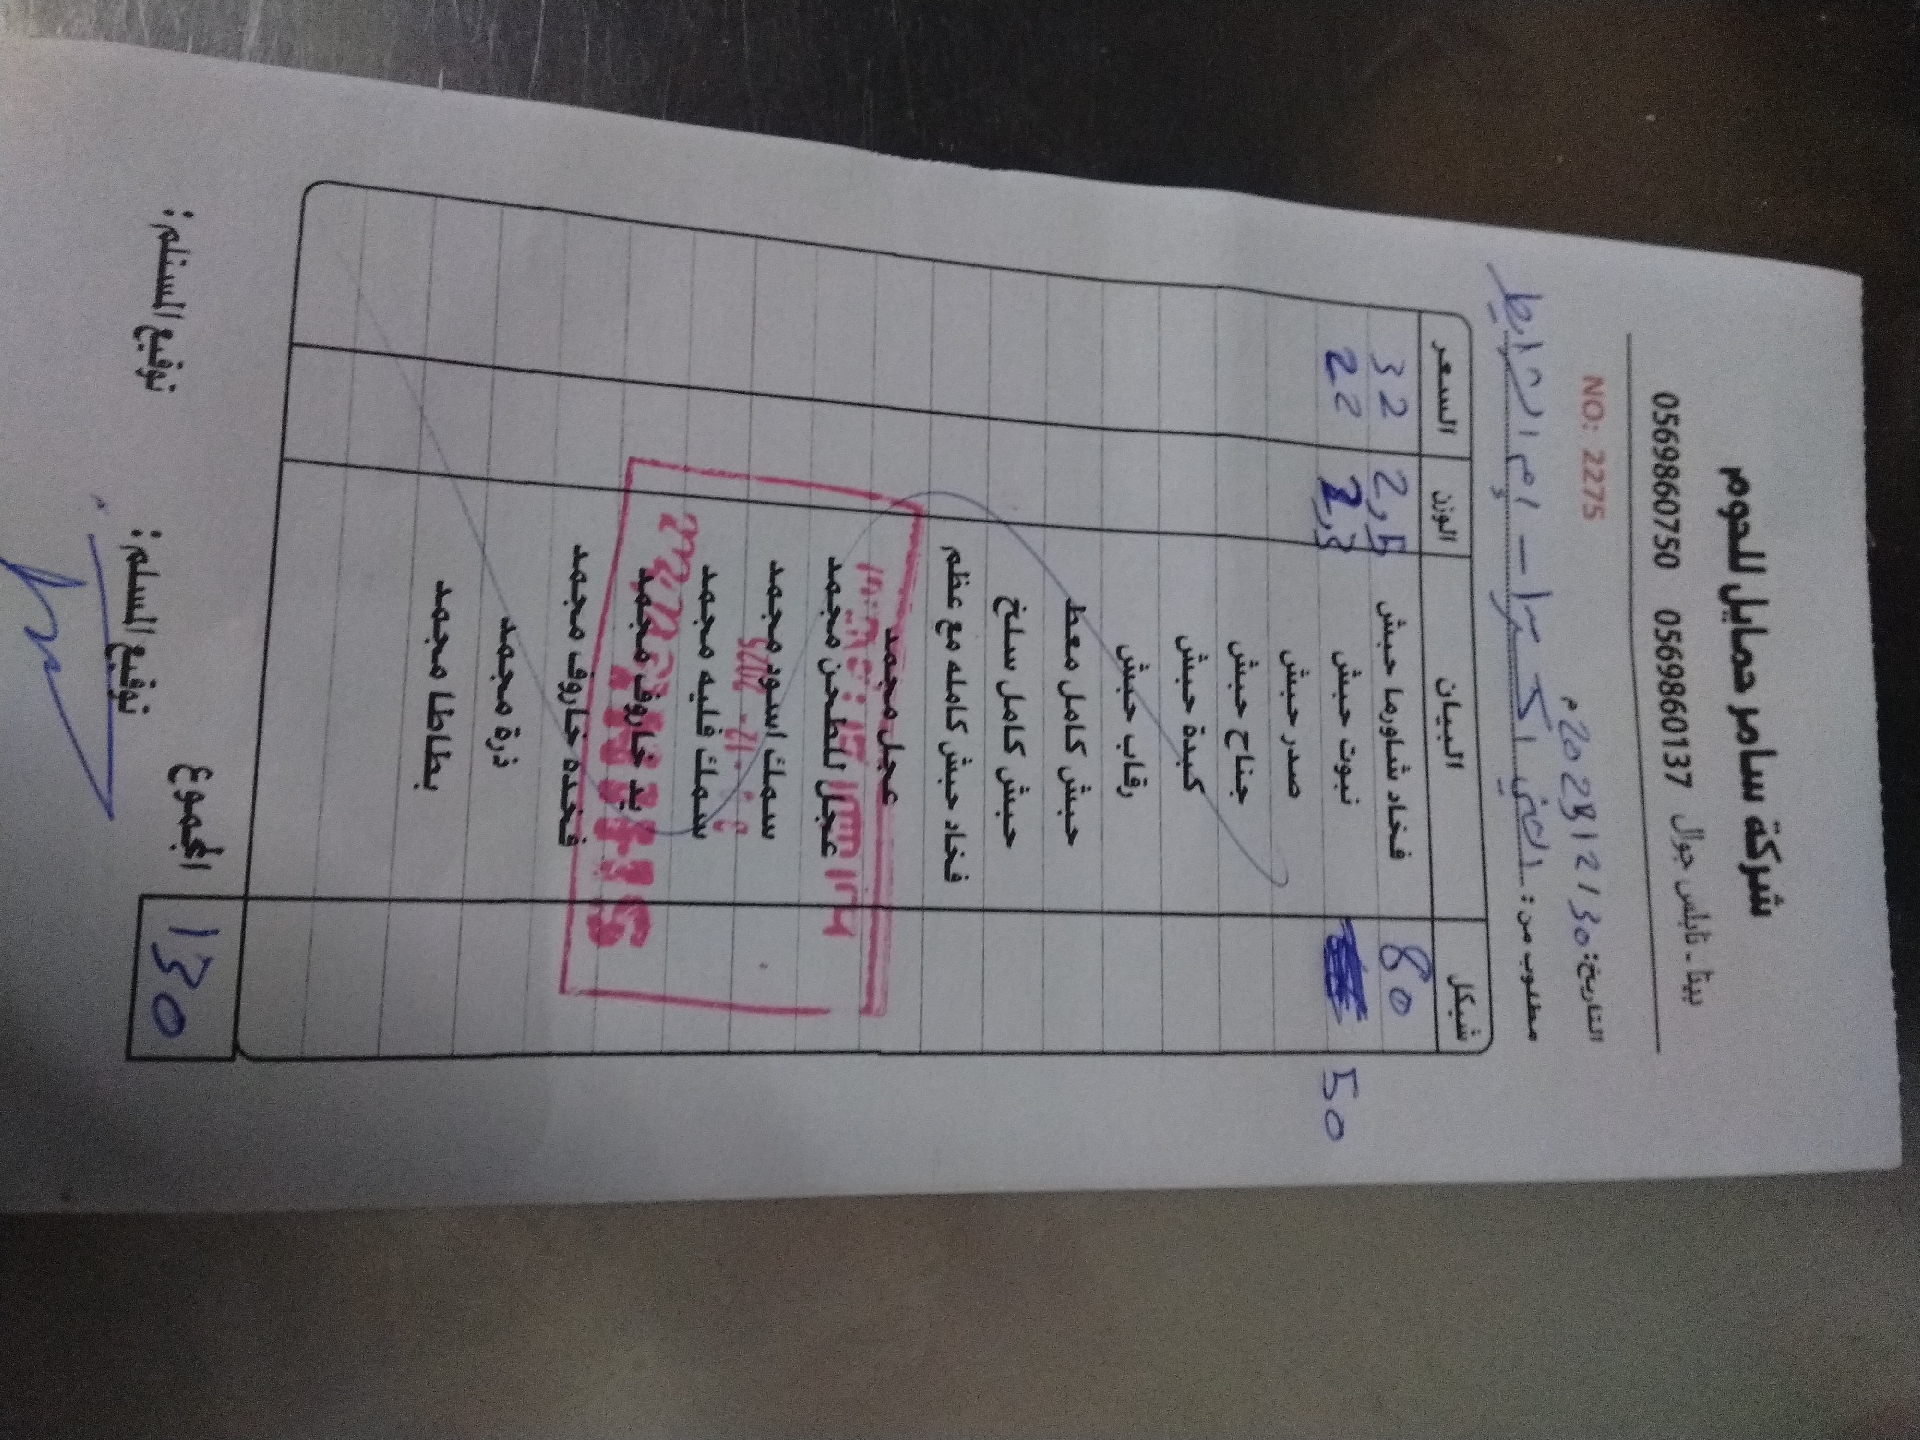 شركة سامر حمايل للحوم
بيتا - نابلس جوال 0569860137 0569860750
التاريخ: 30 / 12 / 202 م NO: 2275
مطلوب من:
شيكل البيان الوزن السعر
80 فخاد شاورما حبش 2,5 32
50 نبوت حبش 2,3 22
صدر حبش
جناح حبش
كبدة حبش
رقاب حبش
حبش كامل معط
حبش كامل سلخ
فخاد حبش كامله مع عظم
عجل مجمد
عجل للطحن مجمد
سمك اسود مجمد
سمك فليه مجمد
يد خاروف مجمد
فخده خاروف مجمد
ذرة مجمد
بطاطا مجمد
130 المجموع
توقيع المسلم: توقيع المستلم: